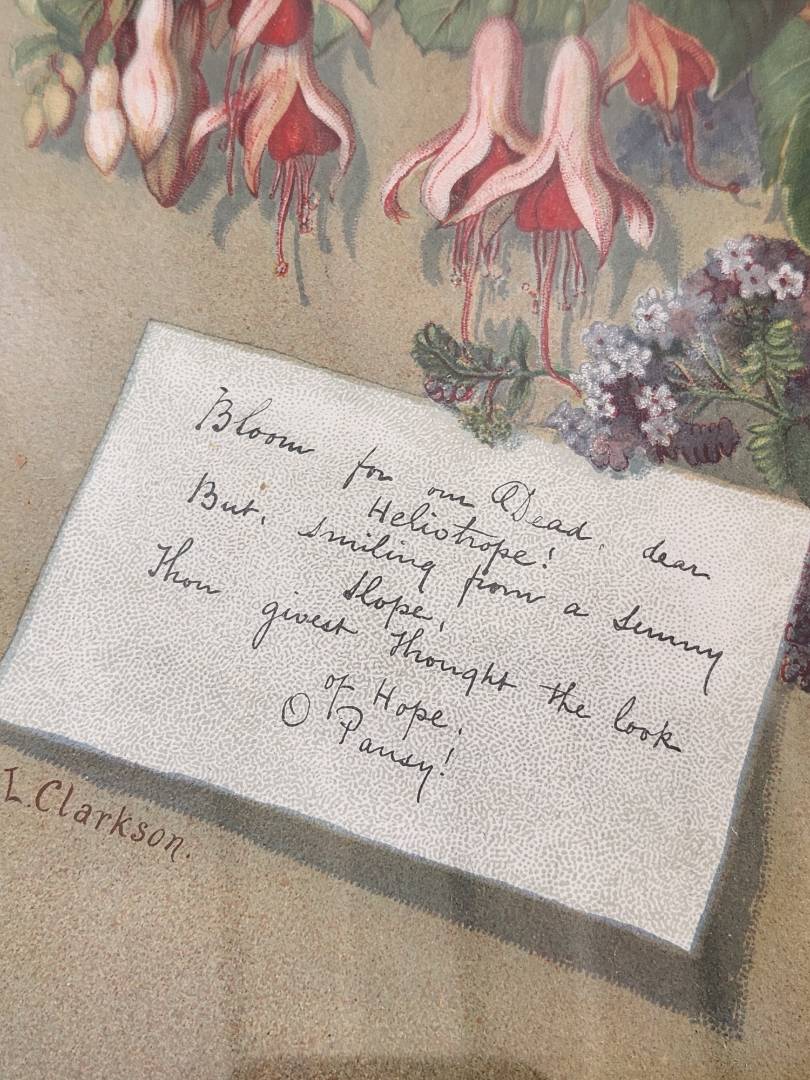 Bloom for our Dead, dear
Heliotrope!
But, smiling from a sunny
slope,
Thou givest Thought the look
of Hope,
O Pansy!
L. Clarkson.